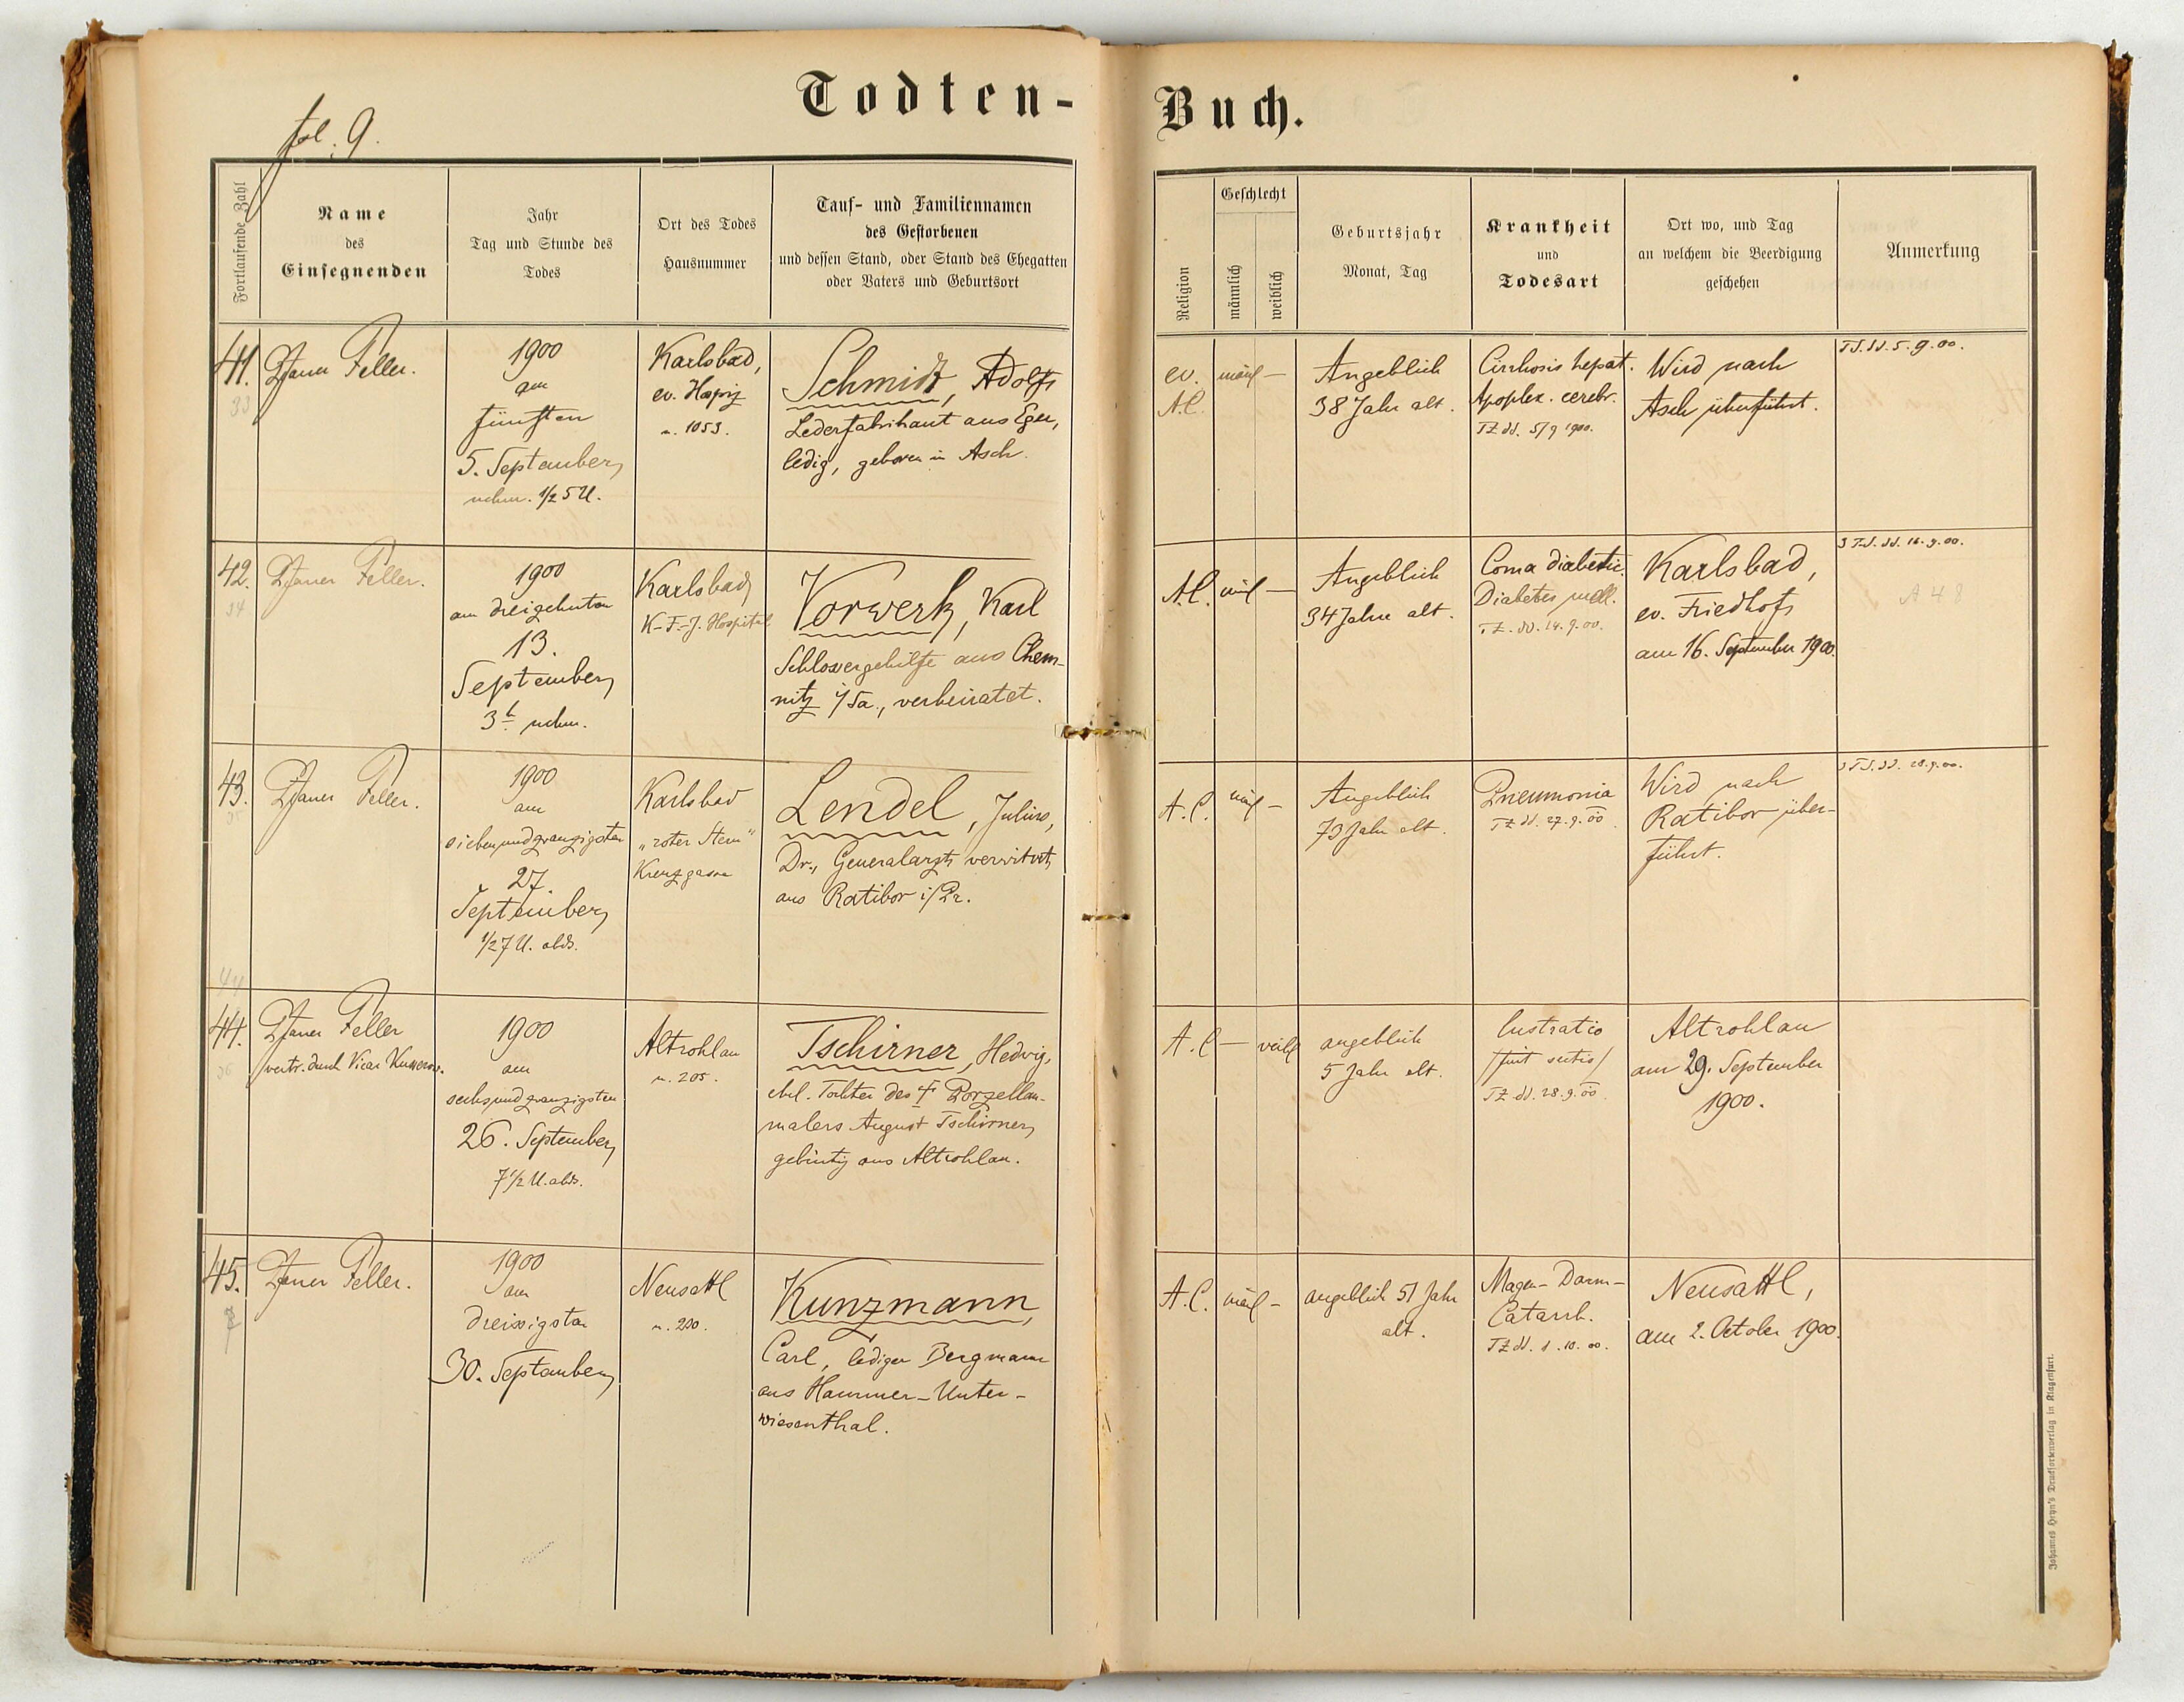 Todten-
Buch.
fol. 9.
Fortlaufende Zahl
Name
des
Einsegnenden
Jahr
Tag und Stunde des
Todes
Ort des Todes
Hausnummer
Tauf- und Familiennamen
des Gestorbenen
und dessen Stand, oder Stand des Ehegatten
oder Vaters und Geburtsort
Religion
Geschlecht
männlich
weiblich
Geburtsjahr
Monat, Tag
Krankheit
und
Todesart
Ort wo, und Tag
an welchem die Beerdigung
geschehen
Anmerkung
41.
33
Pfarrer Feller.
1900
am
fünften
5. September,
nchm. 1/2 5 U.
Karlsbad,
ev. Hospiz
n. 1053.
Schmidt, Adolf,
Lederfabrikant aus Eger,
ledig, geboren in Asch.
ev.
A.C.
männl —
Angeblich
38 Jahre alt.
Cirrhosis hepat.
Apoplex. cerebr.
TZ dd. 5/9 1900.
Wird nach
Asch überführt.
TS. dd. 5. 9. 00.
42.
34
Pfarrer Feller.
1900
am dreizehnten
13.
September,
3h nchm.
Karlsbad,
K.-F.-J. Hospital
Vorwerk, Karl
Schlossergehilfe aus Chem-
nitz i/Sa., verheiratet.
A.C.
männl —
Angeblich
34 Jahre alt.
Coma diabetic.
Diabetes mell.
TZ. dd. 14. 9. 00.
Karlsbad,
ev. Friedhof,
am 16. September 1900.
3 TS. dd. 16. 9. 00.
A 48
43.
35
Pfarrer Feller.
1900
am
siebenundzwanzigsten
27.
September,
1/2 7 U. abds.
Karlsbad
„roter Stern"
Kreuzgasse
Lendel, Julius,
Dr., Generalarzt, verwitwet,
aus Ratibor i/Pr.
A.C.
männl —
Angeblich
73 Jahre alt.
Pneumonia
TZ dd. 27. 9. 00.
Wird nach
Ratibor über-
führt.
3 TS. dd. 28. 9. 00.
44
44.
36
Pfarrer Feller
vertr. durch Vicar
1900
am
sechsundzwanzigsten
26. September,
7 1/2 U. abds.
Altrohlau
n. 205.
Tschirner, Hedwig,
ehel. Tochter des † Porzellan-
malers August Tschirner,
gebürtig aus Altrohlau.
A.C
— weibl
angeblich
5 Jahre alt.
TZ dd. 28. 9. 00.
Altrohlau
am 29. September
1900.
45.
7
Pfarrer Feller.
1900
am
dreissigsten
30. September,
Neusattl
n. 230.
Kunzmann,
Carl, lediger Bergmann
aus Hammer-Unter-
wiesenthal.
A.C.
männl —
angeblich 51 Jahre
alt.
Magen-Darm-
Catarrh.
TZ dd. 1. 10. 00.
Neusattl,
am 2. October 1900.
Johannes Heyn's Drucksortenverlag in Klagenfurt.